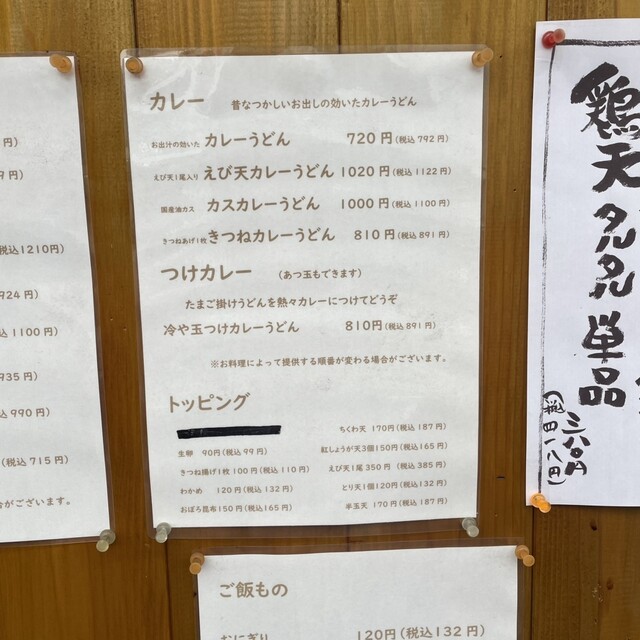 円)
9円)
税込1210円)
924円)
税込1100円)
935円)
税込990円)
税込715円)
合がございます。
カレー 昔なつかしいお出しの効いたカレーうどん
お出汁の効いた カレーうどん 720円(税込792円)
えび天1尾入り えび天カレーうどん 1020円(税込1122円)
国産油カス カスカレーうどん 1000円(税込1100円)
きつねあげ1枚 きつねカレーうどん 810円(税込891円)
つけカレー (あつ玉もできます)
たまご掛けうどんを熱々カレーにつけてどうぞ
冷や玉つけカレーうどん 810円(税込891円)
※お料理によって提供する順番が変わる場合がございます。
トッピング
生卵 90円(税込99円)
きつね揚げ1枚100円(税込110円)
わかめ 120円(税込132円)
おぼろ昆布150円(税込165円)
ちくわ天 170円(税込187円)
紅しょうが天3個150円(税込165円)
えび天1尾350円(税込385円)
とり天1個120円(税込132円)
半玉天 170円(税込187円)
ご飯もの
おにぎり 120円(税込132円)
鶏天タルタル単品
三八〇円
(税込四一八円)